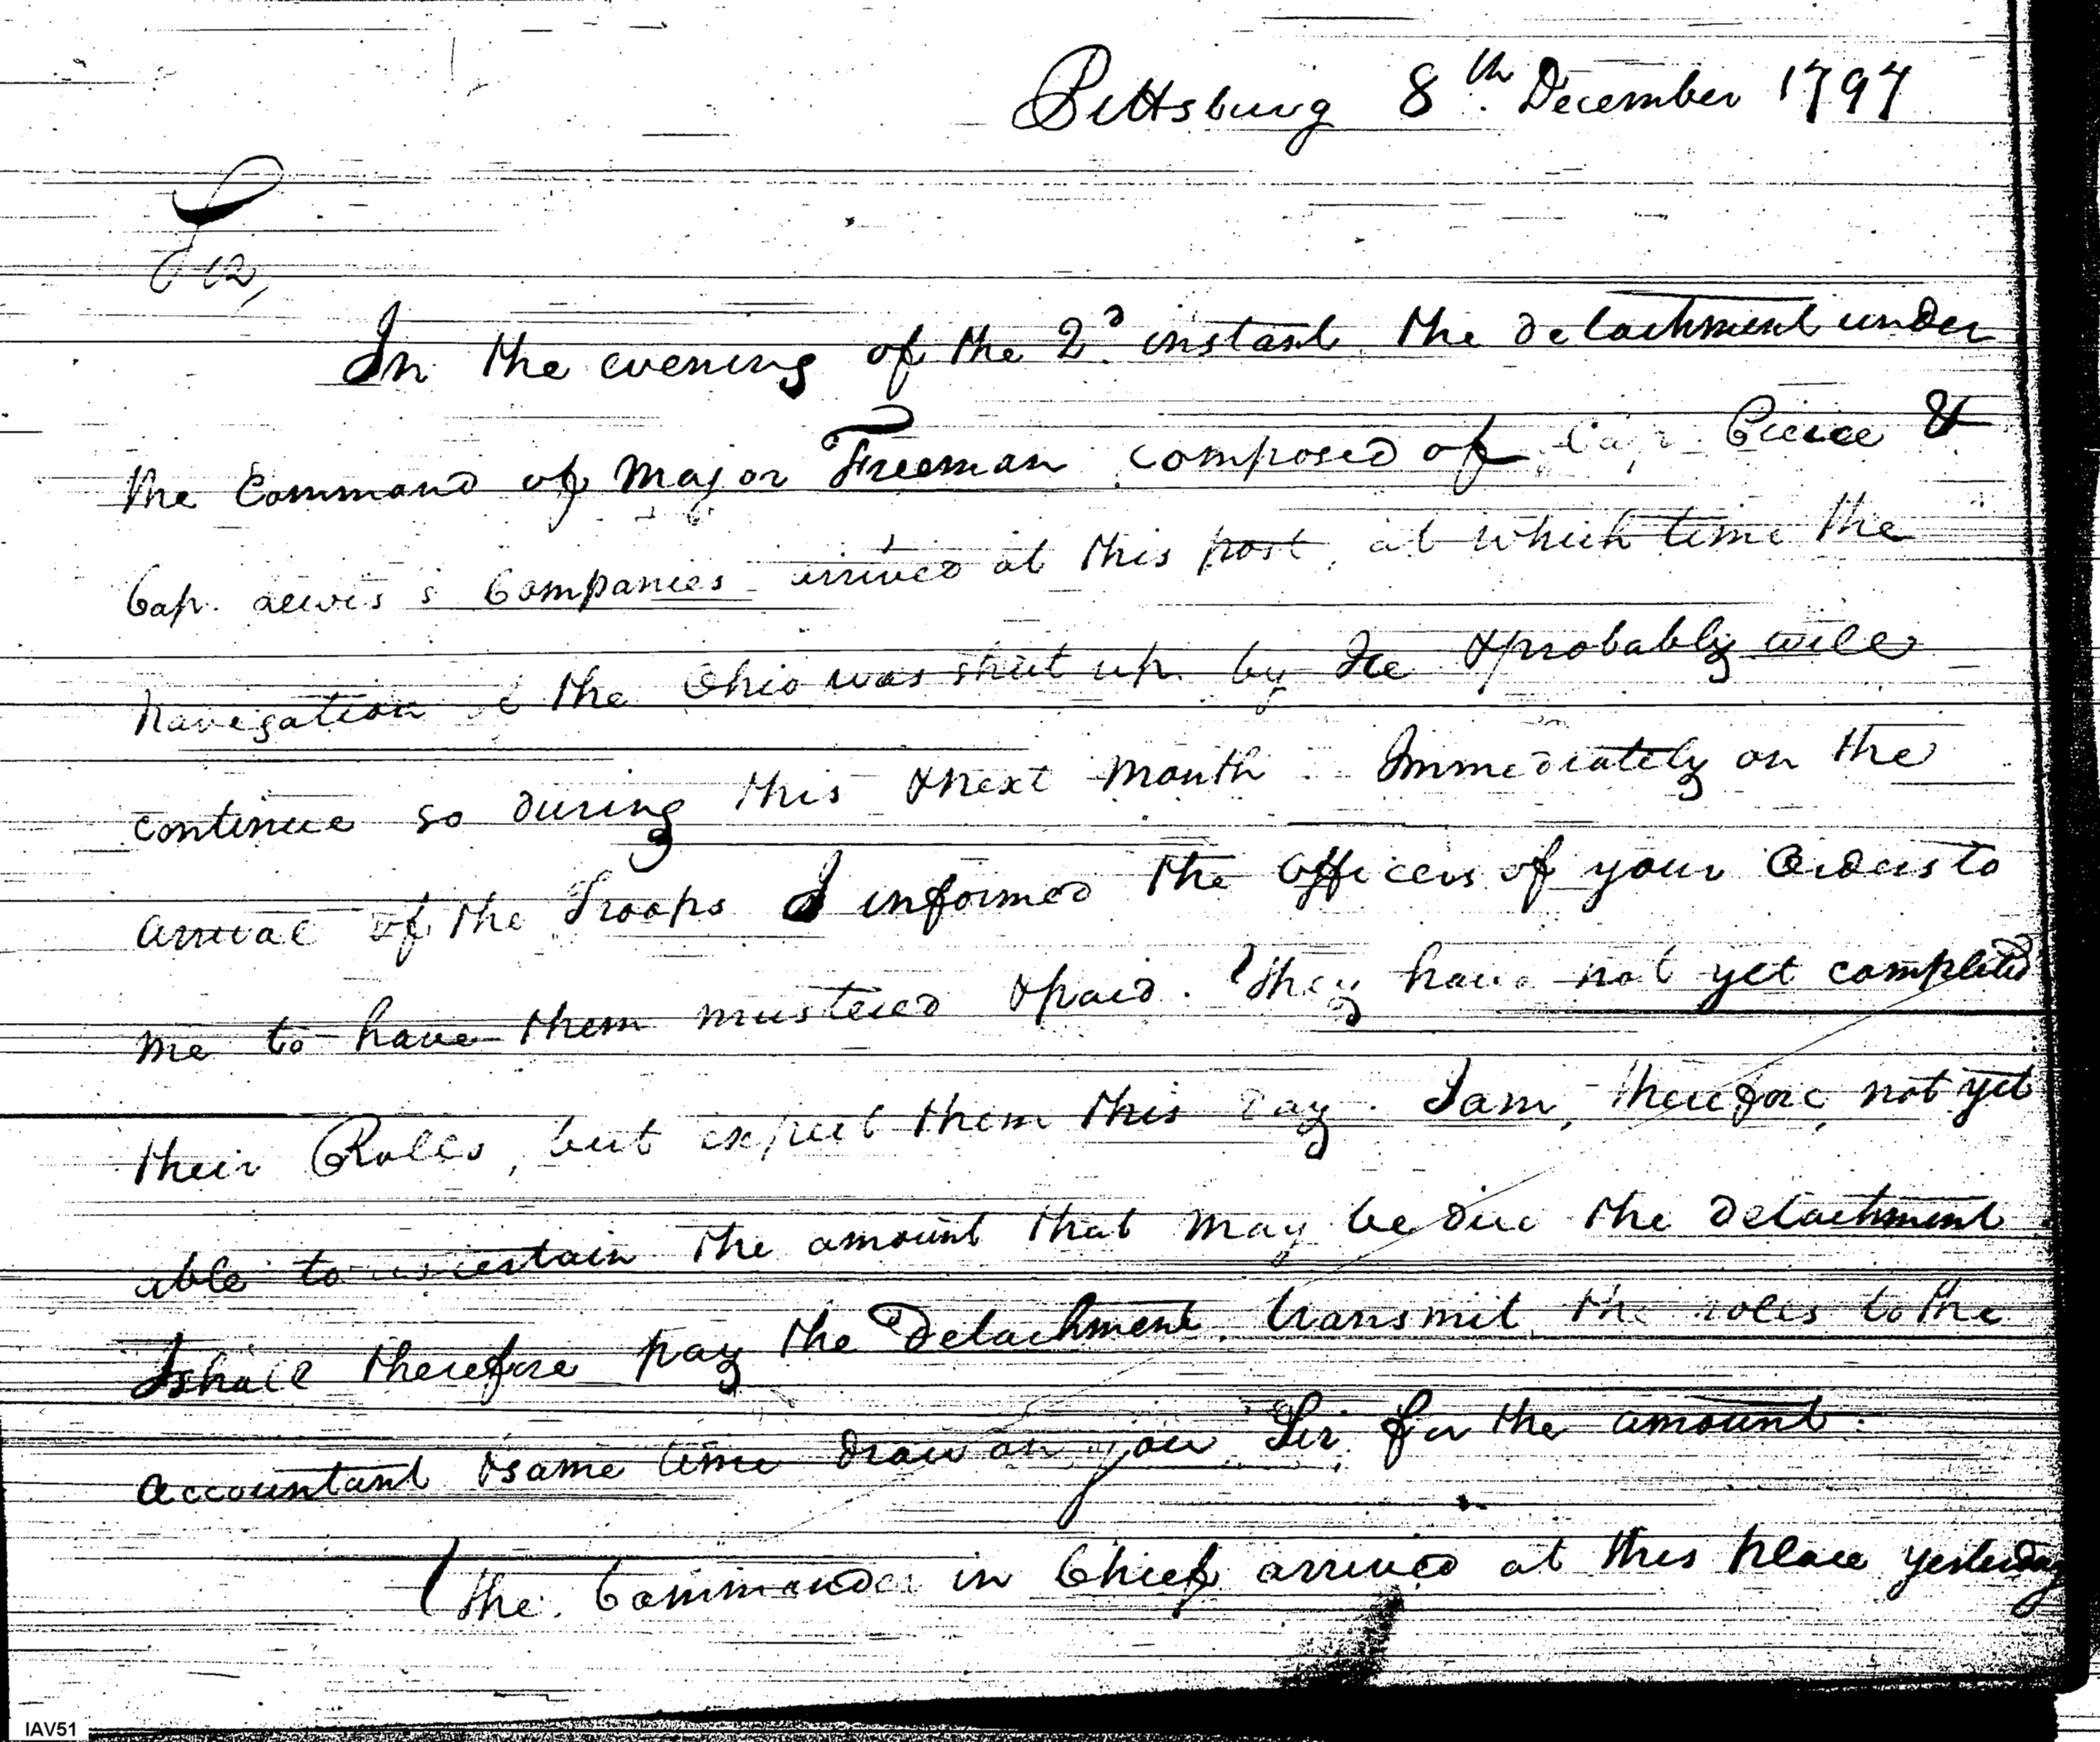 Pittsburg 8th December 1797
Sir,
In the evening of the 2d instant the detachment under
the Command of Major Freeman composed of Cap. Pierce &
Cap. Lewis's Companies arrived at this post, at which time the
navigation of the Ohio was shut up by Ice & probably will
continue so during this & next month. Immediately on the
arrival of the Troops I informed the officers of your Orders to
me to have them mustered & paid. They have not yet completed
their Rolls, but expect them this day. I am, therefore, not yet
able to ascertain the amount that may be due the detachment.
I shall therefore pay the Detachment, transmit the rolls to the
accountant & same time draw on you Sir, for the amount.
The Commander in Chief arrived at this place yesterday
IAV51